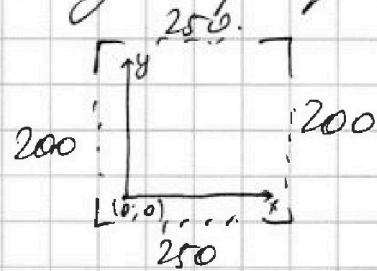 250.
y
200 200
(0;0) x
250